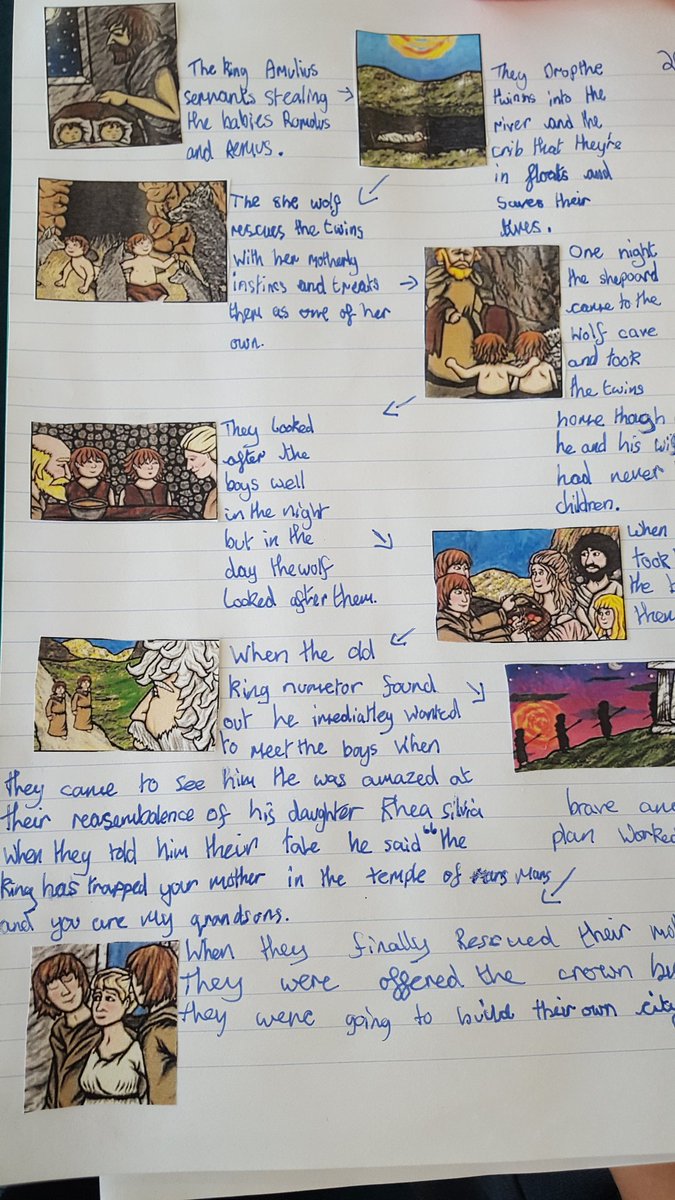 The King Amulius
servants stealing
the babies Romulus
and Remus.
They Drop the
twinns into the
river and the
crib that they're
in floats and
saves their
lives.
The she wolf
rescues the twins
with her motherly
instincs and treats
them as one of her
own.
One night
the shepoard
came to the
wolf cave
and took
the twins
home though
he and his
had never
children.
They looked
after the
boys well
in the night
but in the
day the wolf
looked after them.
When
took
the
them
When the old
King numetor found
out he imediatley wanted
to meet the boys when
they came to see him He was amazed at
their reasembalence of his daughter Rhea Silvia
When they told him their tale he said "the
King has trapped your mother in the temple of Mars
and you are my grandsons.
brave
plan worked
When they finally Rescued their
They were offered the crown
they were going to build their own city